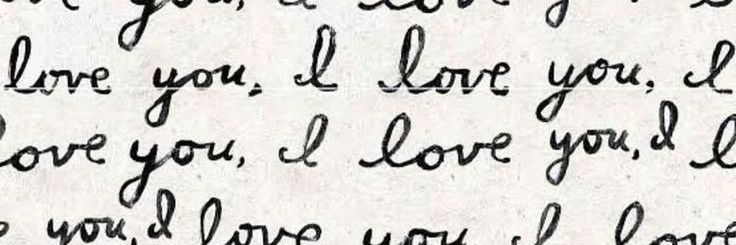 love you, I love
love you, I love you, I
love you, I love you, I
you, I love you I love